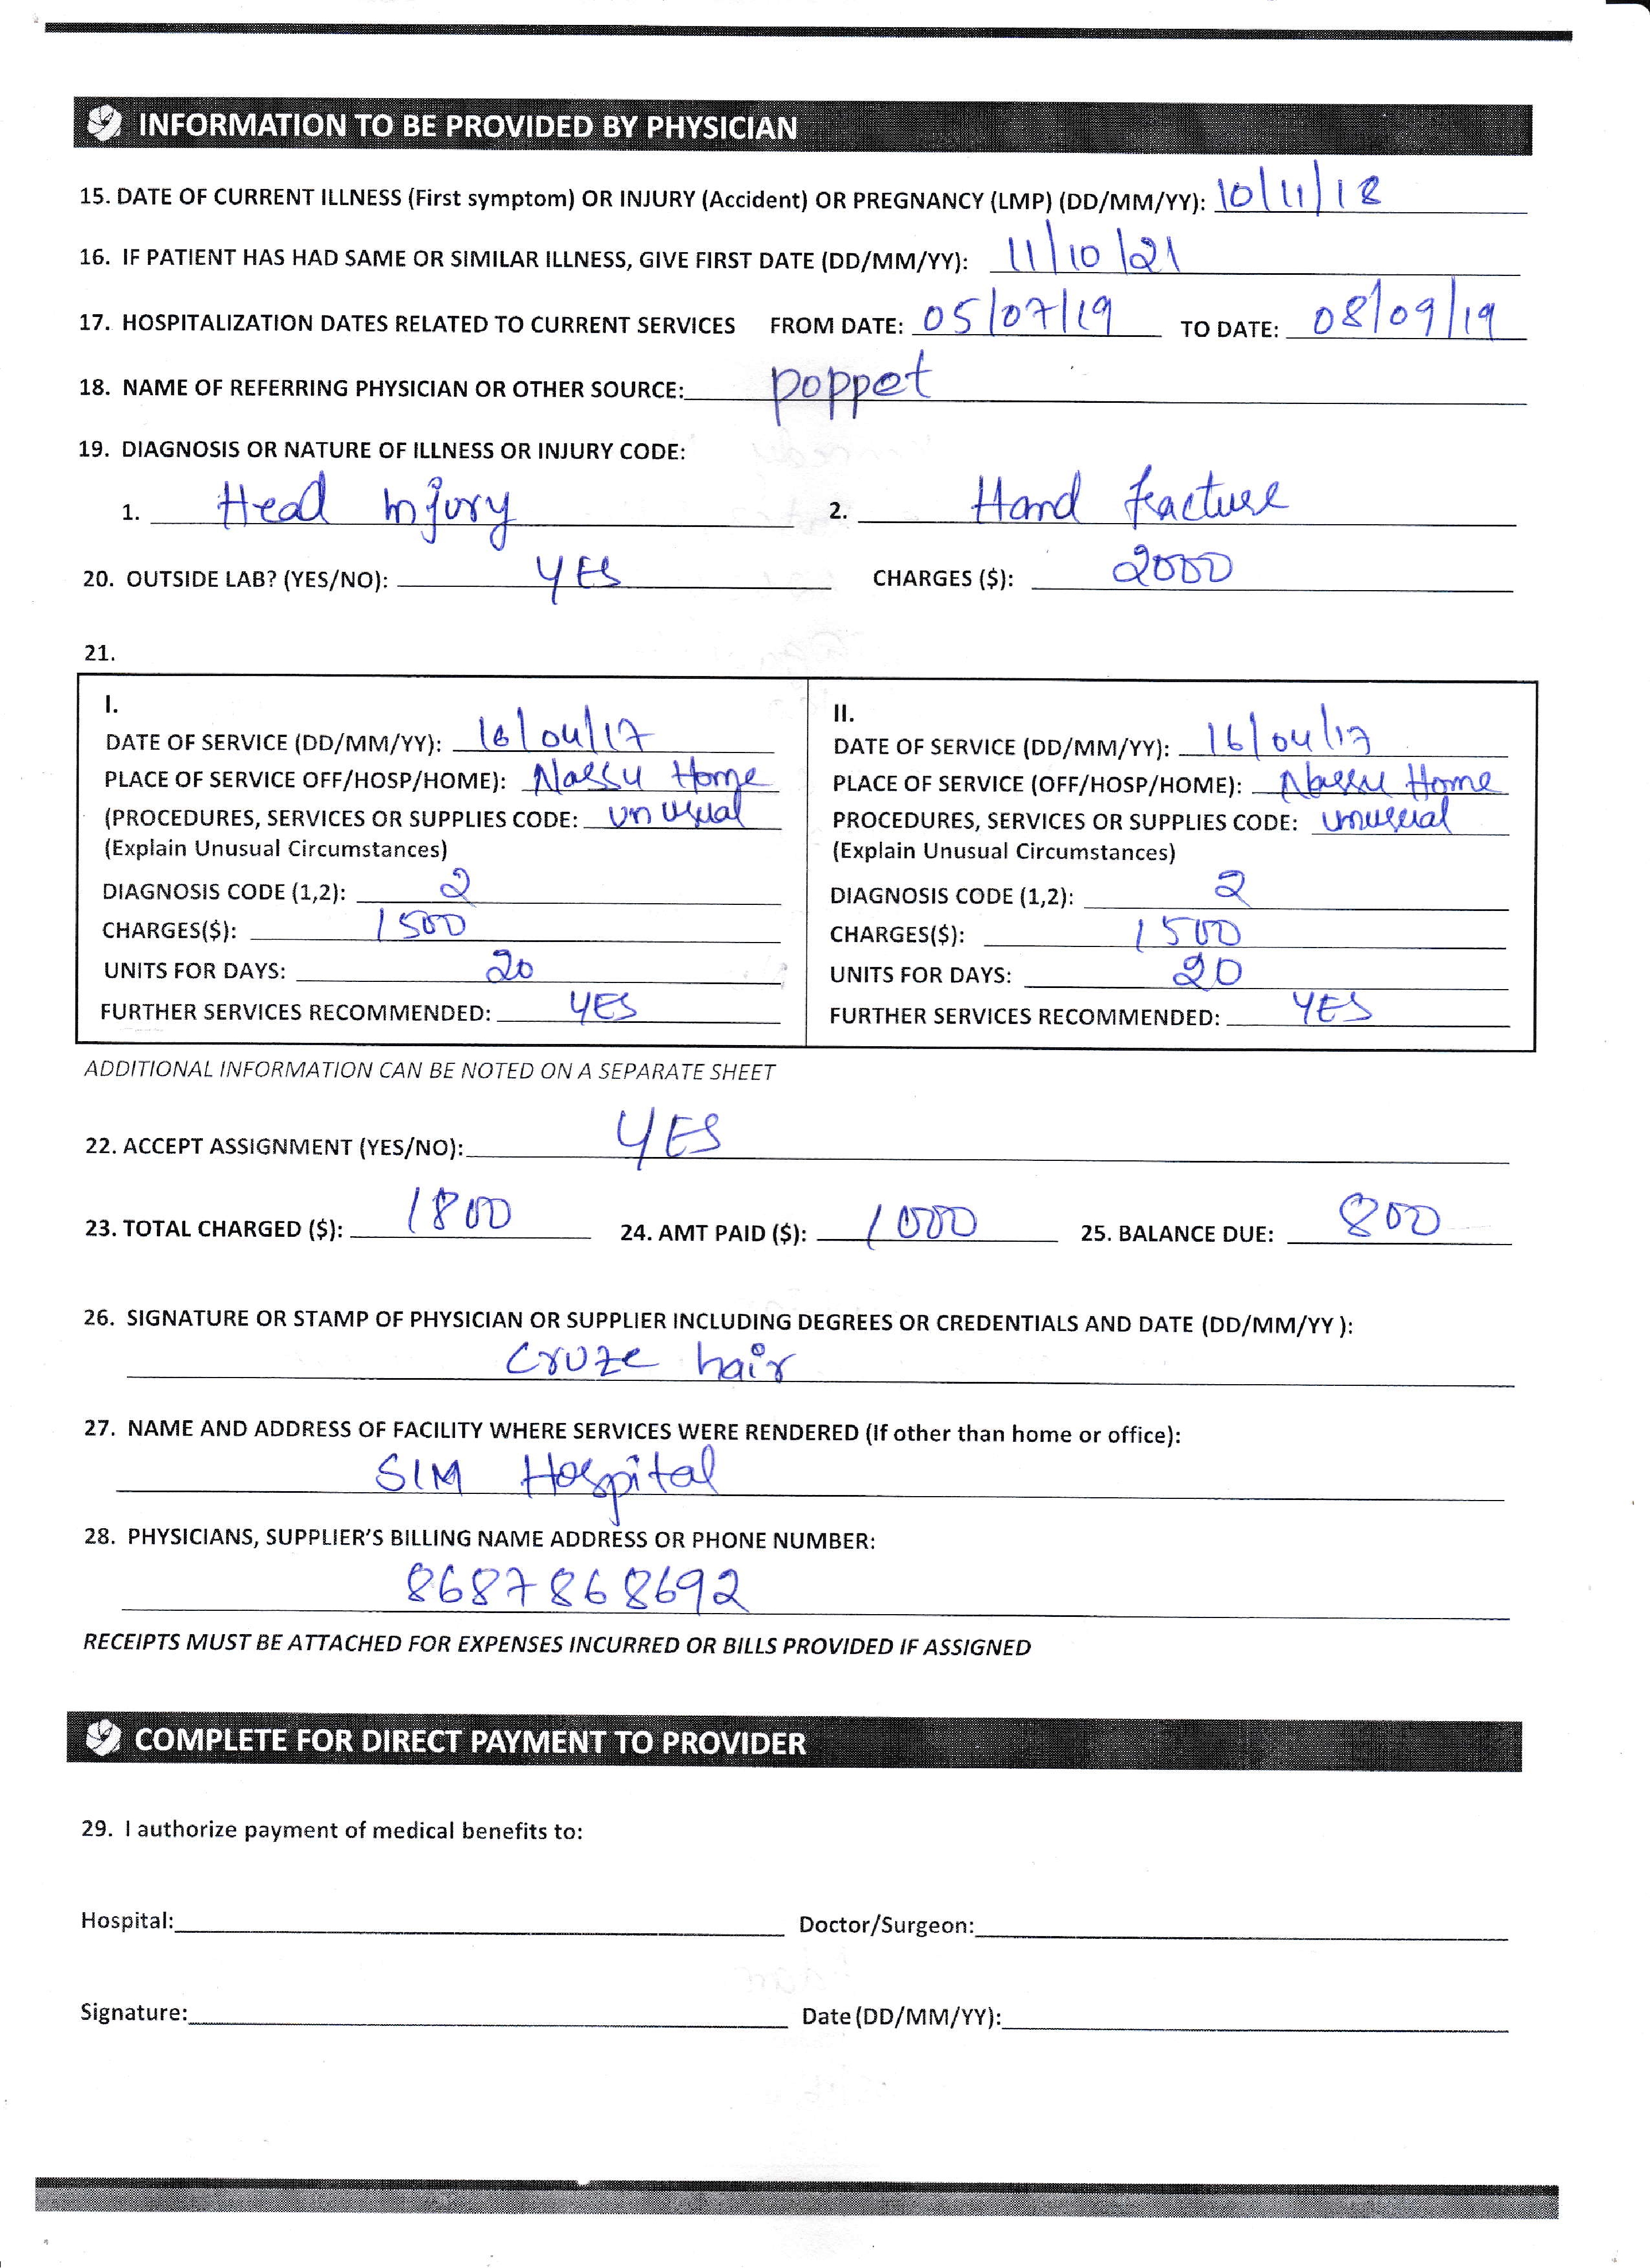 INFORMATION TO BE PROVIDED BY PHYSICIAN
15. DATE OF CURRENT ILLNESS (First symptom) OR INJURY (Accident) OR PREGNANCY (LMP) (DD/MM/YY): 10/11/18
16. IF PATIENT HAS HAD SAME OR SIMILAR ILLNESS, GIVE FIRST DATE (DD/MM/YY): 11/10/21
17. HOSPITALIZATION DATES RELATED TO CURRENT SERVICES FROM DATE: 05/07/19 TO DATE: 08/09/19
18. NAME OF REFERRING PHYSICIAN OR OTHER SOURCE: poppet
19. DIAGNOSIS OR NATURE OF ILLNESS OR INJURY CODE:
1. Head Injury 2. Hand fracture
20. OUTSIDE LAB? (YES/NO): YES CHARGES ($): 2000
21.
I.
DATE OF SERVICE (DD/MM/YY): 16/04/17
PLACE OF SERVICE OFF/HOSP/HOME): Nassu Home
(PROCEDURES, SERVICES OR SUPPLIES CODE: unusual
(Explain Unusual Circumstances)
DIAGNOSIS CODE (1,2): 2
CHARGES($): 1500
UNITS FOR DAYS: 20
FURTHER SERVICES RECOMMENDED: YES
II.
DATE OF SERVICE (DD/MM/YY): 16/04/17
PLACE OF SERVICE (OFF/HOSP/HOME): Nassu Home
PROCEDURES, SERVICES OR SUPPLIES CODE: unusual
(Explain Unusual Circumstances)
DIAGNOSIS CODE (1,2): 2
CHARGES($): 1500
UNITS FOR DAYS: 20
FURTHER SERVICES RECOMMENDED: YES
ADDITIONAL INFORMATION CAN BE NOTED ON A SEPARATE SHEET
22. ACCEPT ASSIGNMENT (YES/NO): YES
23. TOTAL CHARGED ($): 1800 24. AMT PAID ($): 1000 25. BALANCE DUE: 800
26. SIGNATURE OR STAMP OF PHYSICIAN OR SUPPLIER INCLUDING DEGREES OR CREDENTIALS AND DATE (DD/MM/YY ):
Cruze hair
27. NAME AND ADDRESS OF FACILITY WHERE SERVICES WERE RENDERED (If other than home or office):
SIM Hospital
28. PHYSICIANS, SUPPLIER'S BILLING NAME ADDRESS OR PHONE NUMBER:
8687868692
RECEIPTS MUST BE ATTACHED FOR EXPENSES INCURRED OR BILLS PROVIDED IF ASSIGNED
COMPLETE FOR DIRECT PAYMENT TO PROVIDER
29. I authorize payment of medical benefits to:
Hospital: Doctor/Surgeon:
Signature: Date (DD/MM/YY):